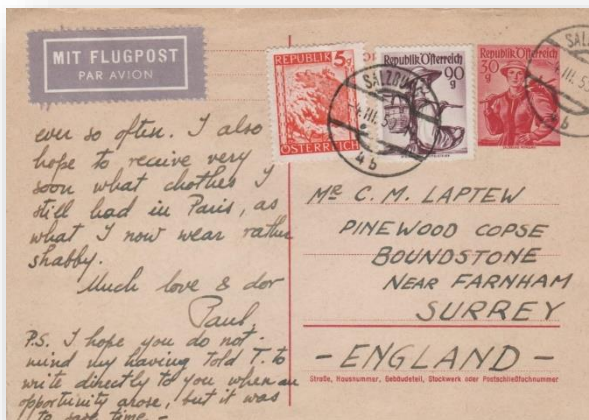 MIT FLUGPOST
PAR AVION
REPUBLIK 5g
ÖSTERREICH
Republik Österreich
90
g
Republik Österreich
30
g
SALZBURG
III. 5
4b
SALZ
III. 5
b
ever so often. I also
hope to receive very
soon what clothes I
still had in Paris, as
what I now wear rather
shabby.
Much love & dor
Paul,
P.S. I hope you do not
mind my having told T. to
write directly to you when an
opportunity arose, but it was
to save time –
MR C. M. LAPTEW
PINEWOOD COPSE
BOUNDSTONE
NEAR FARNHAM
SURREY
– ENGLAND –
Straße, Hausnummer, Gebäudeteil, Stockwerk oder Postschließfachnummer